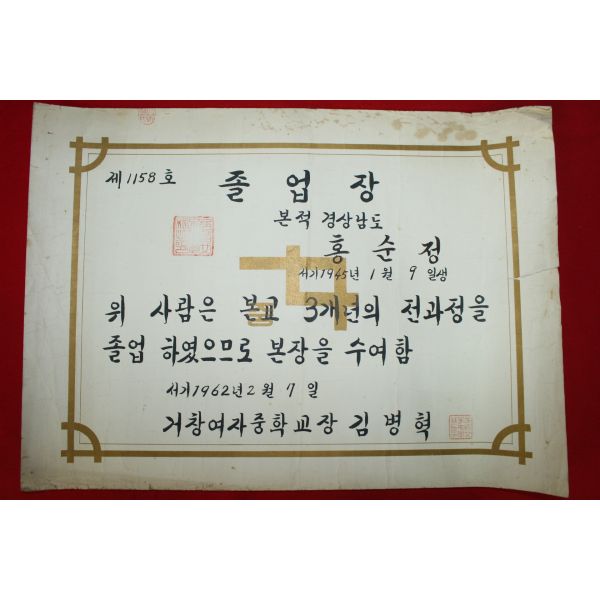 제1158호
졸업장
본적 경상남도
홍순정
서기1945년 1월 9일생
위 사람은 본교 3개년의 전과정을
졸업 하였으므로 본장을 수여함
서기1962년2월 7일
거창여자중학교장 김병혁